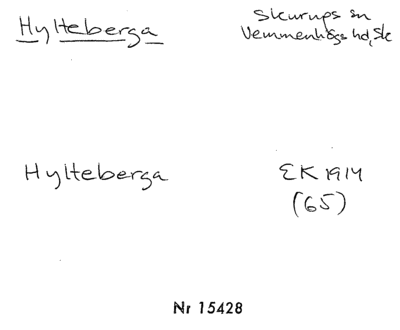 Hylteberga
Skurups sn
Vemmenhögs hd, Sk
Hylteberga
EK 1914
(65)
Nr 15428